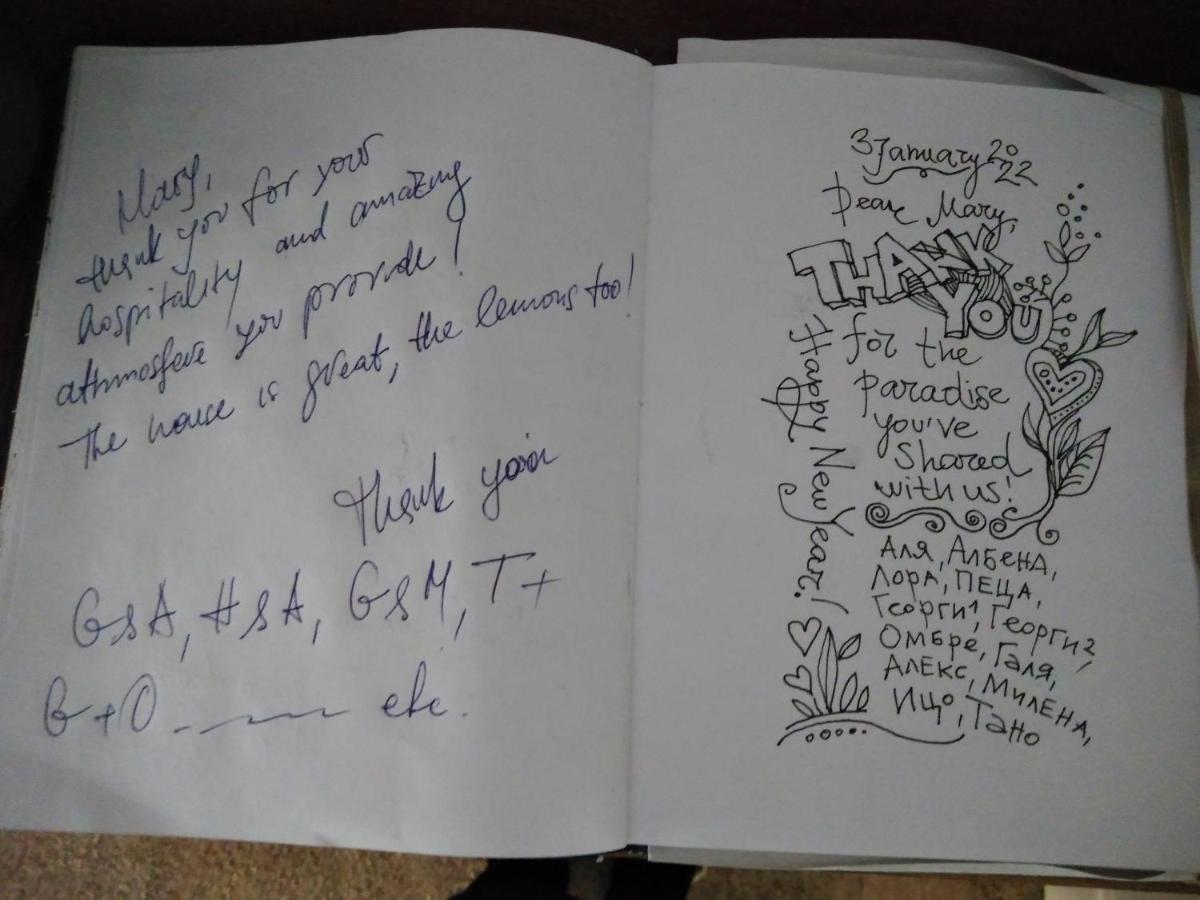 Mary,
thank you for your
hospitality and amazing
athmosfere you provide!
The house is great, the lemons too!
Thank you
GsA, HsA, GsM, T+
G+O etc.
3 January 2022
Dear Mary,
THANK
YOU
for the
paradise
you've
shared
with us!
Happy New Year!
Аля, Албена,
Лора, ПЕЦА,
Георги1, Георги2,
Омбре, Галя,
Алекс, Милена,
Ицо, Тано